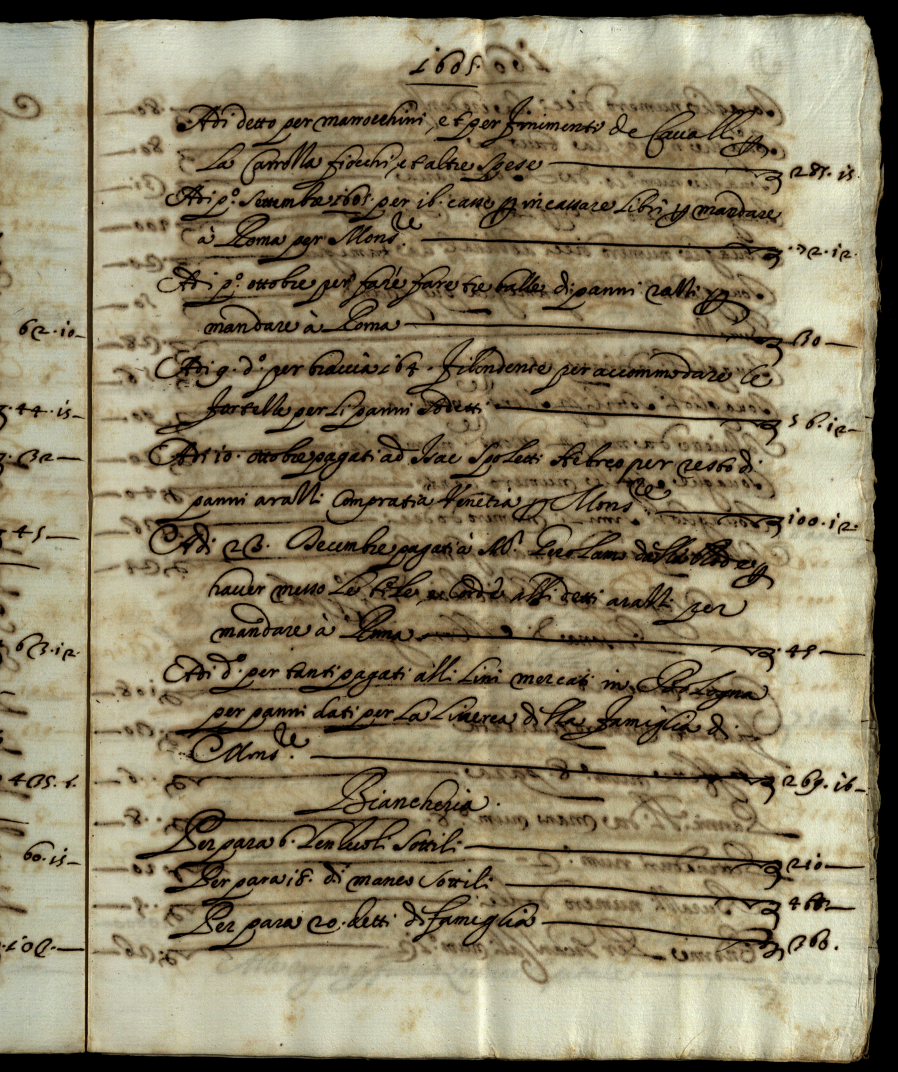 1605.
Adi detto per marrocchini, et per finimenti de Cavalli p
La Carrozza fiocchi, et altre spese — 285.15.
Adi pº. Settembre 1605. per 16. casse p incassare Libri p mandare
à Roma per Mons.re — 72.12.
Adi pº. ottobre per fare fare tre balle di panni razzi p
mandare à Roma — 30 —
Adi 9. dº. per braccia 164. filondente per accommodare le
per li panni — 56.12 —
Adi 10. ottobre pagati ad Isac Spoletti Hebreo per resto di
panni arazzi Comprati à Venetia p Mons.re — 100.12.
Adi 23. Decembre pagati à Mº. Gierolamo p
haver messo le tele, et corde alli detti arazzi per
mandare à Roma — 45 —
Adi dº. per tanti pagati alli Lini mercati in Bologna
per panni dati per La Liverea della famiglia di
Mons.re — 269.16 —
Biancheria.
Per para 6. Lenzuoli Sottili — 210 —
Per para 18. di manco sottili — 468 —
Per para 20. detti di famiglia — 360.
62.10 —
44.15 —
32 —
45 —
63.12
435.
60.15 —